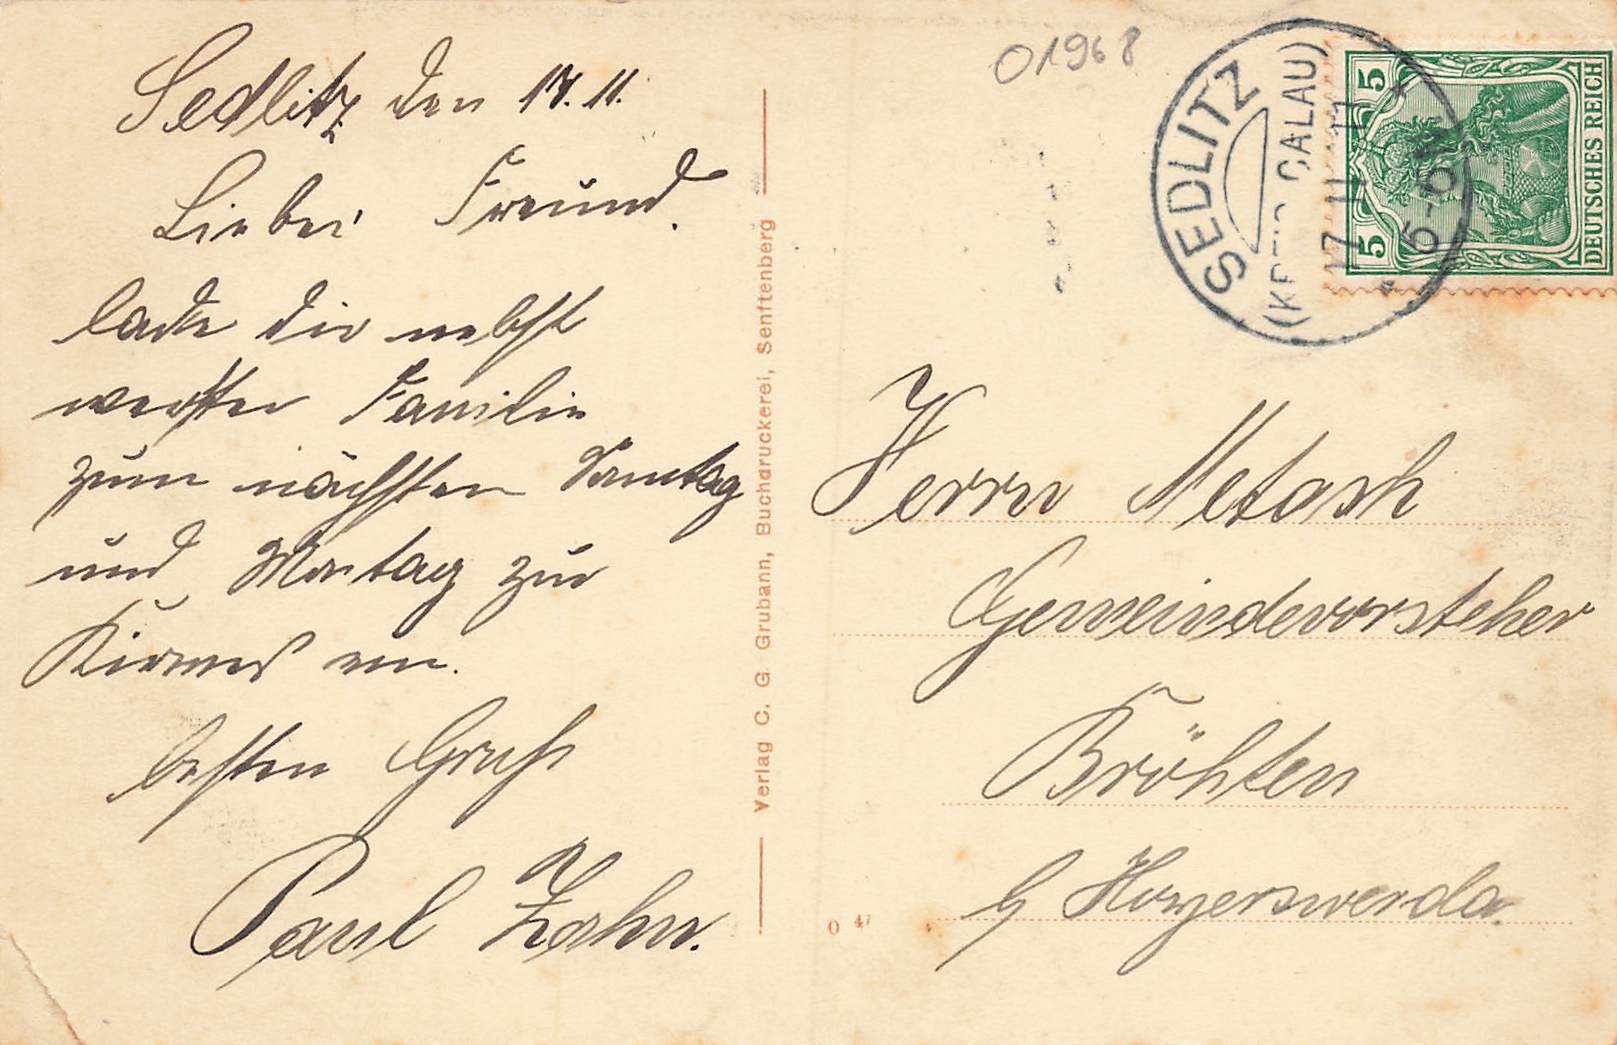 Sedlitz den 17.11.
Lieber Freund.
lade die nebst
werther Familie
zum nächsten Sonntag
und Montag zur
Kirmes ein.
besten Gruß
Paul Zahn.
Verlag C. G Grubann, Buchdruckerei, Senftenberg
O 47
01968
SEDLITZ
CALAU)
17 11 11
5-6N
5 5
DEUTSCHES REICH
Herrn Metash
Gemeindevorsteher
Bröhten
b/ Hoyerswerda